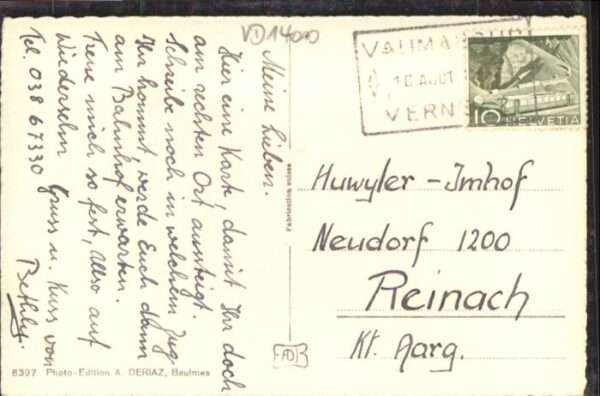 VD 1400
Meine Lieben.
Hier eine Karte, damit Ihr doch
am rechten Ort aussteigt.
Schreibe noch in welchem Zug
Ihr kommt, werde Euch dann
am Bahnhof erwarten.
Freue mich so fest, Also auf
Wiedersehn Gruss u. Kuss von
Tel. 038 67330 Bethly.
8397 Photo-Edition A. DERIAZ, Baulmes
VAUMARCUS
10 AOUT
VERN
10
HELVETIA
Huwyler-Imhof
Neudorf 1200
Reinach
Kt. Aarg.